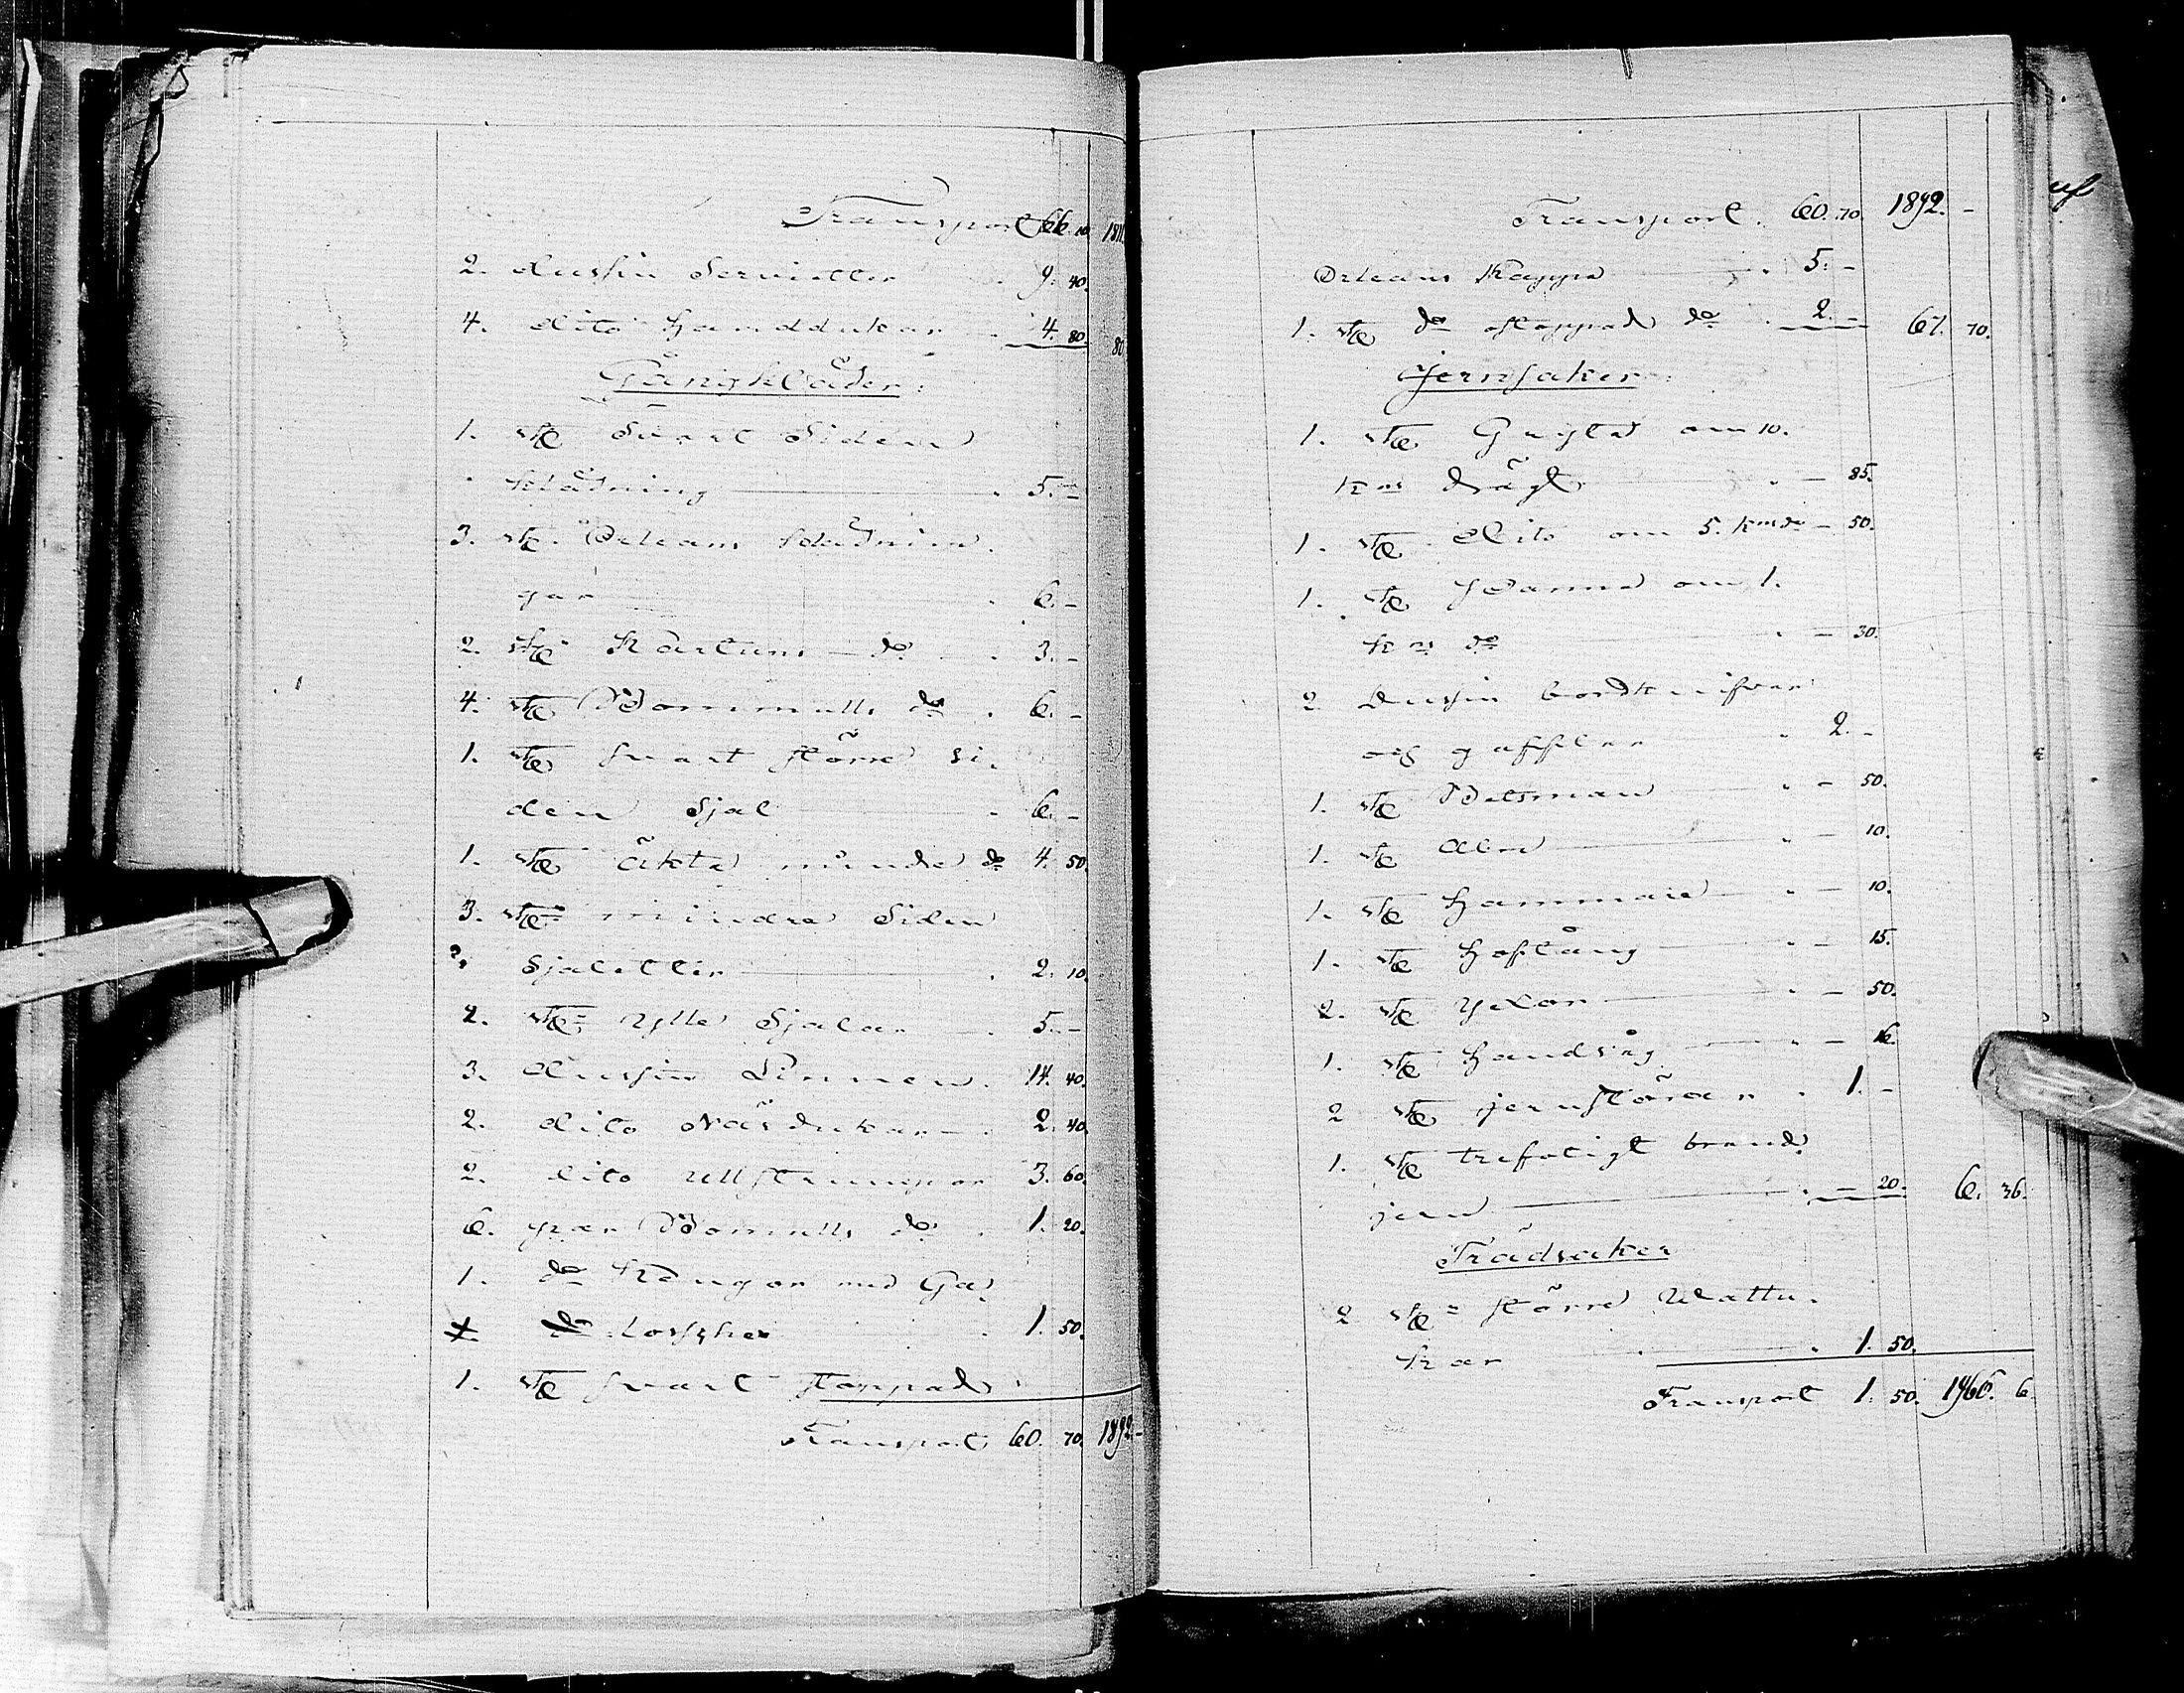 Transport 66. 10 1811.
2. dussin Servietter 9. 40.
4. dito Handdukar 4. 80. 80
Gångkläder:
1. st. Svart Siden
klädning 5. -
3. st. Orleans klädnin.
gar 6. -
2. st. Kartuns do 3. -
4. st. Bommulls do 6. -
1. st. svart större si.
den Sjal 6. -
1. st. äkta mindre do 4. 50.
3. st. mindre Siden
Sjaletter 2. 10.
2. st. Ylle Sjalar 5. -
3. dussin Linnen 14. 40.
2. dito Näsdukar 2. 40.
2. dito Ullstrumpor 3. 60.
6. par Bomulls do 1. 20.
1. do Kängor med Ga
losher 1. 50.
1. st. svart stoppad
Transport 60. 70. 1892. -
Transport 60. 70 1892. -
Orleans Kappa 5. -
1. st. do ostoppad do 2. - 67. 70.
Jernsaker:
1. st. Gryta om 10.
kns drägt - 85.
1. st. dito om 5. kns do - 50.
1. st. Panna om 1.
kns do - 30.
2 Dussin bordknifvar
och gafflar 2. -
1. st. Betsman - 50.
1. st. Aln - 10.
1. st. Hammare - 10.
1. st. Hoftång - 15.
2. st. Yxor - 50.
1. st. Handsåg - 16.
2 st. jernstörar 1. -
1. st. trefotigt brand
jern - 20. 6. 36.
Trädsaker
2 st. större Vattu.
kar 1. 50.
Transport 1. 50. 1966. 6.